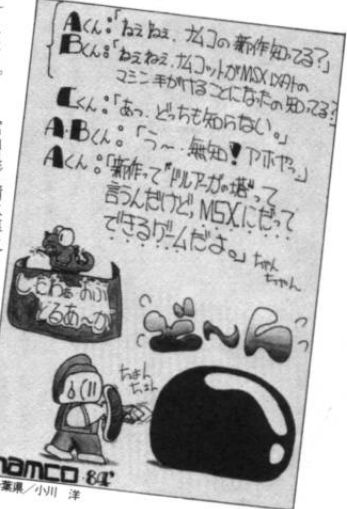 Aくん:「ねえねえ、ナムコの新作知ってる?」
Bくん:「ねえねえ、ナムコットがMSX以外の
マシン手がけることになたの知ってる?
Cくん:「あっ、どっちも知らない。」
A・Bくん:「う〜、無知!アホヤっ」
Aくん:「新作って"ドルアーガの塔"って
言うんだけど、MSXにだって
できるゲームだよ。」
ちゃん
ちゃん
どるあ〜が
ど〜ん
ちょん
ちょん
namco 84'
葉県/小川 洋